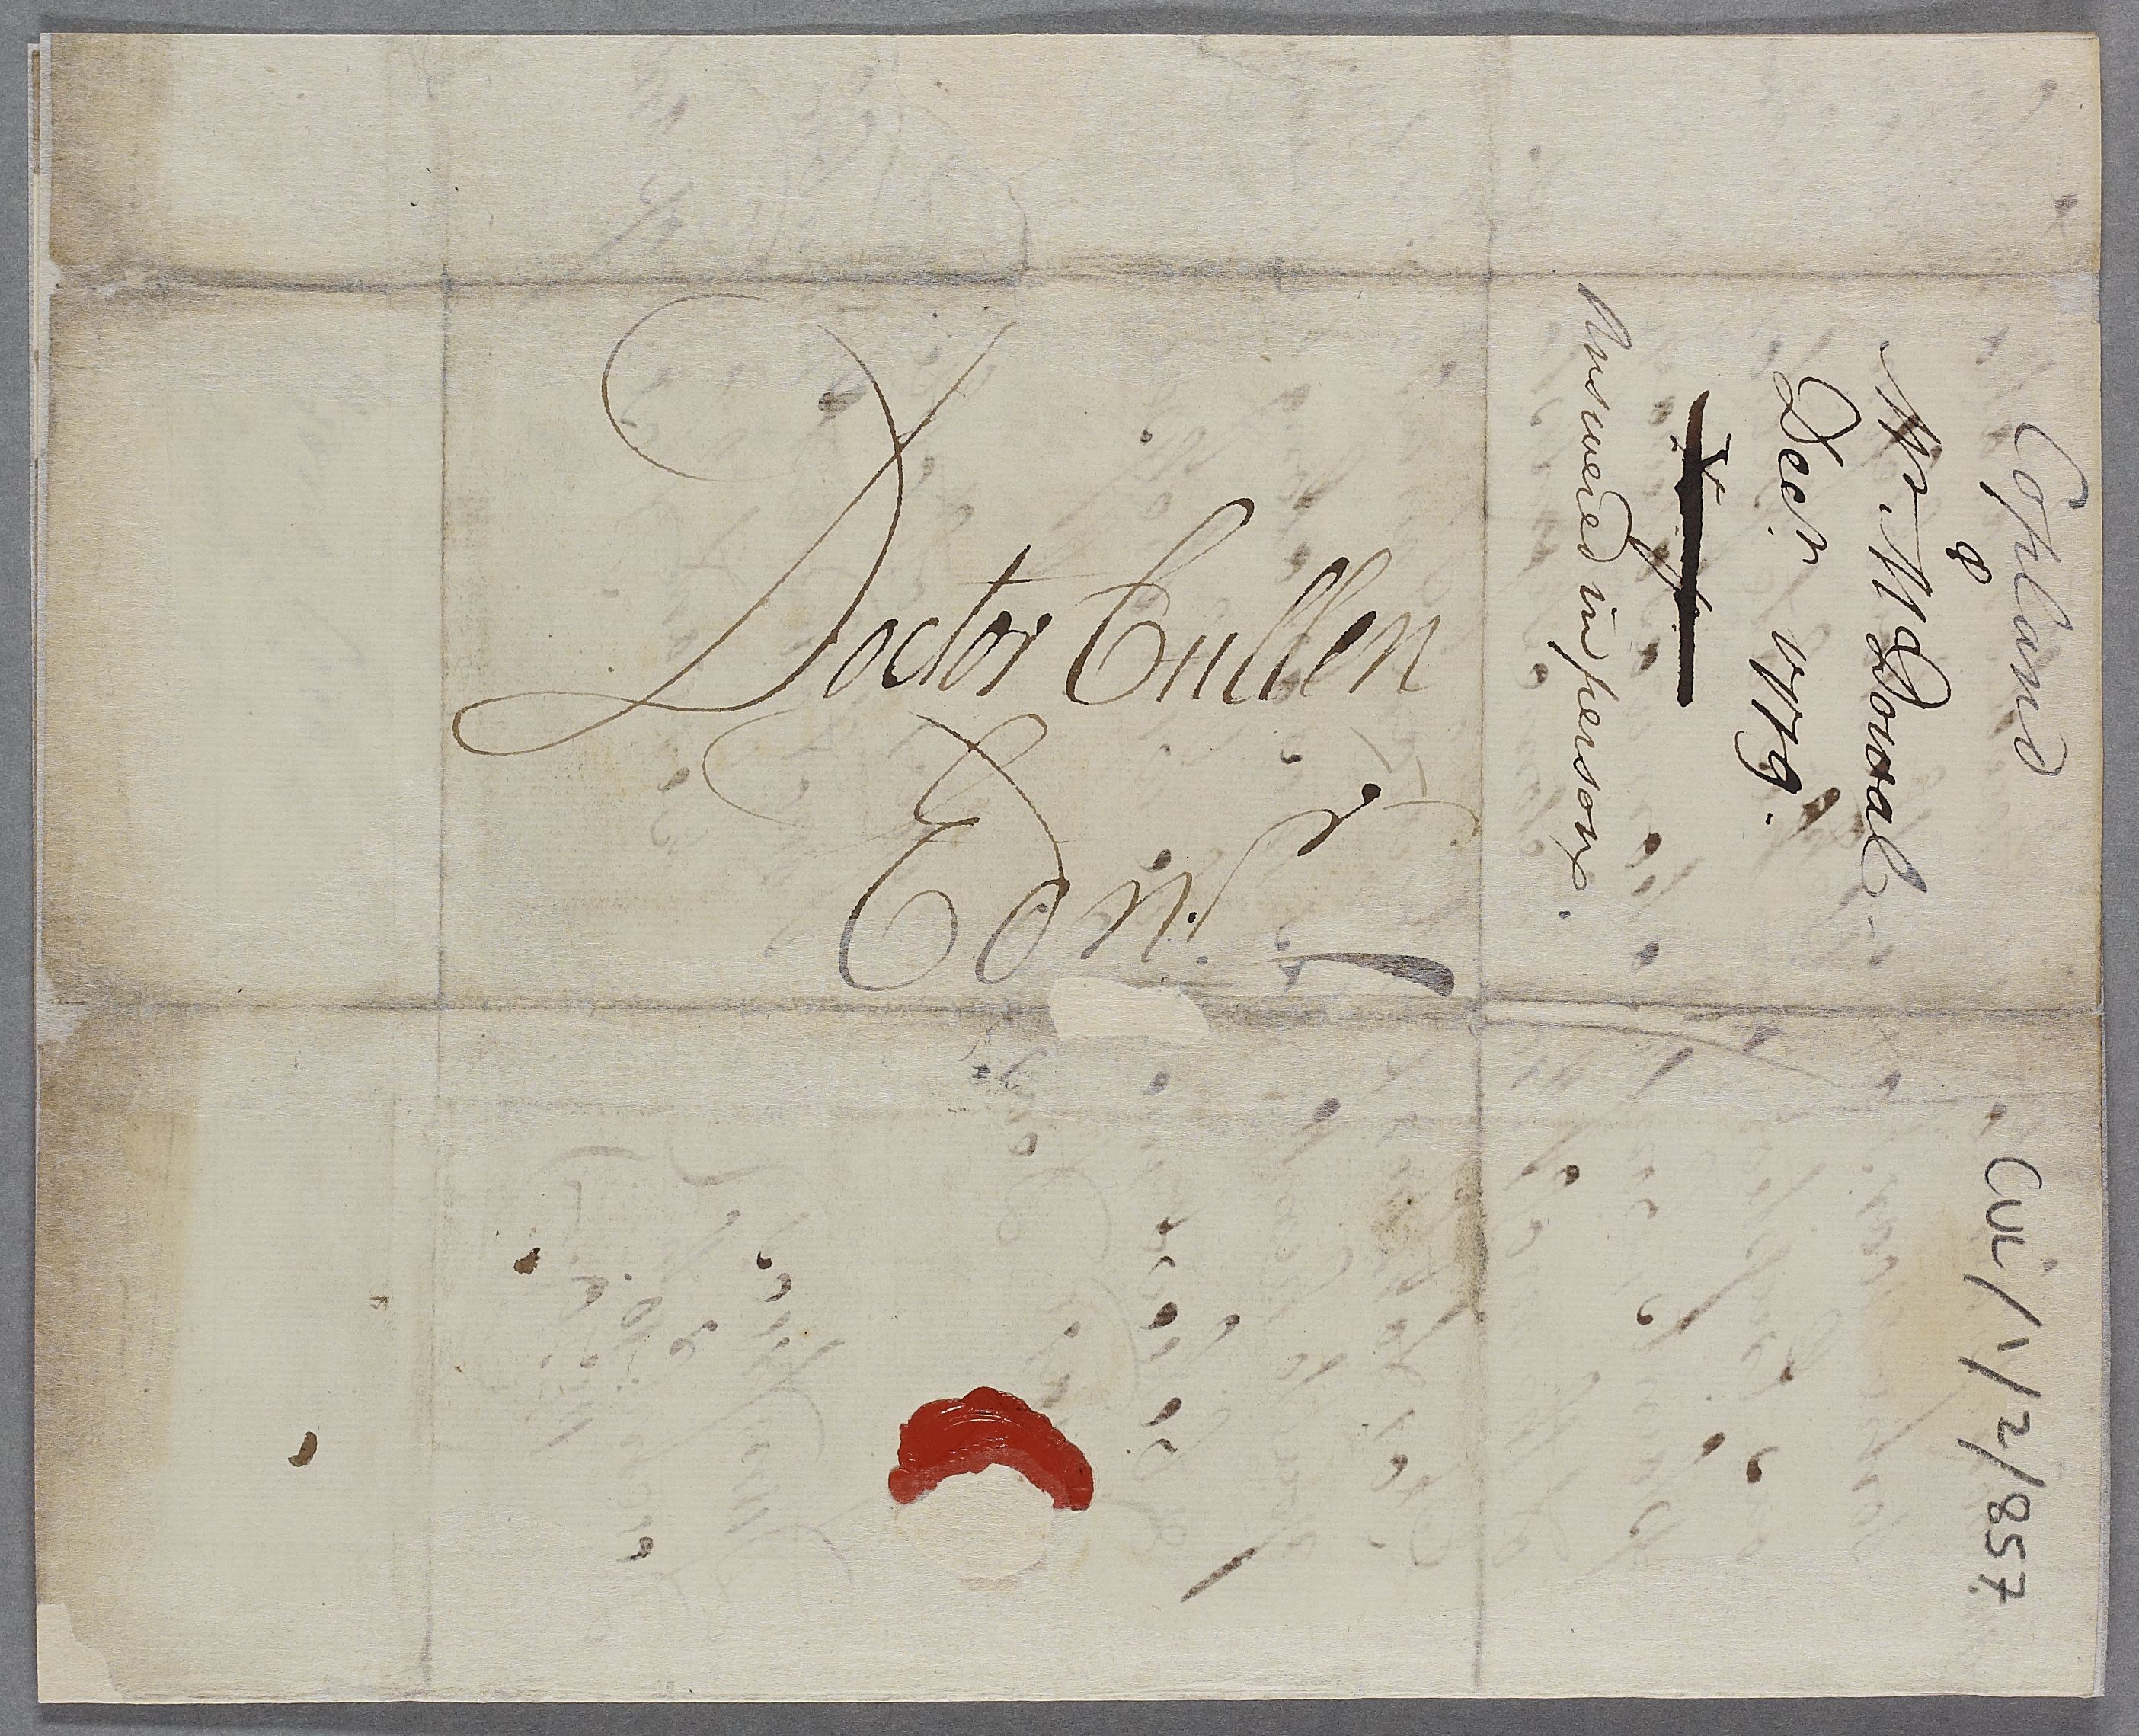 Doctor Cullen
Edinr.
Copland
&
Mr McDonal
Decr. 1779.
Answered in person.
CUL/1/2/857